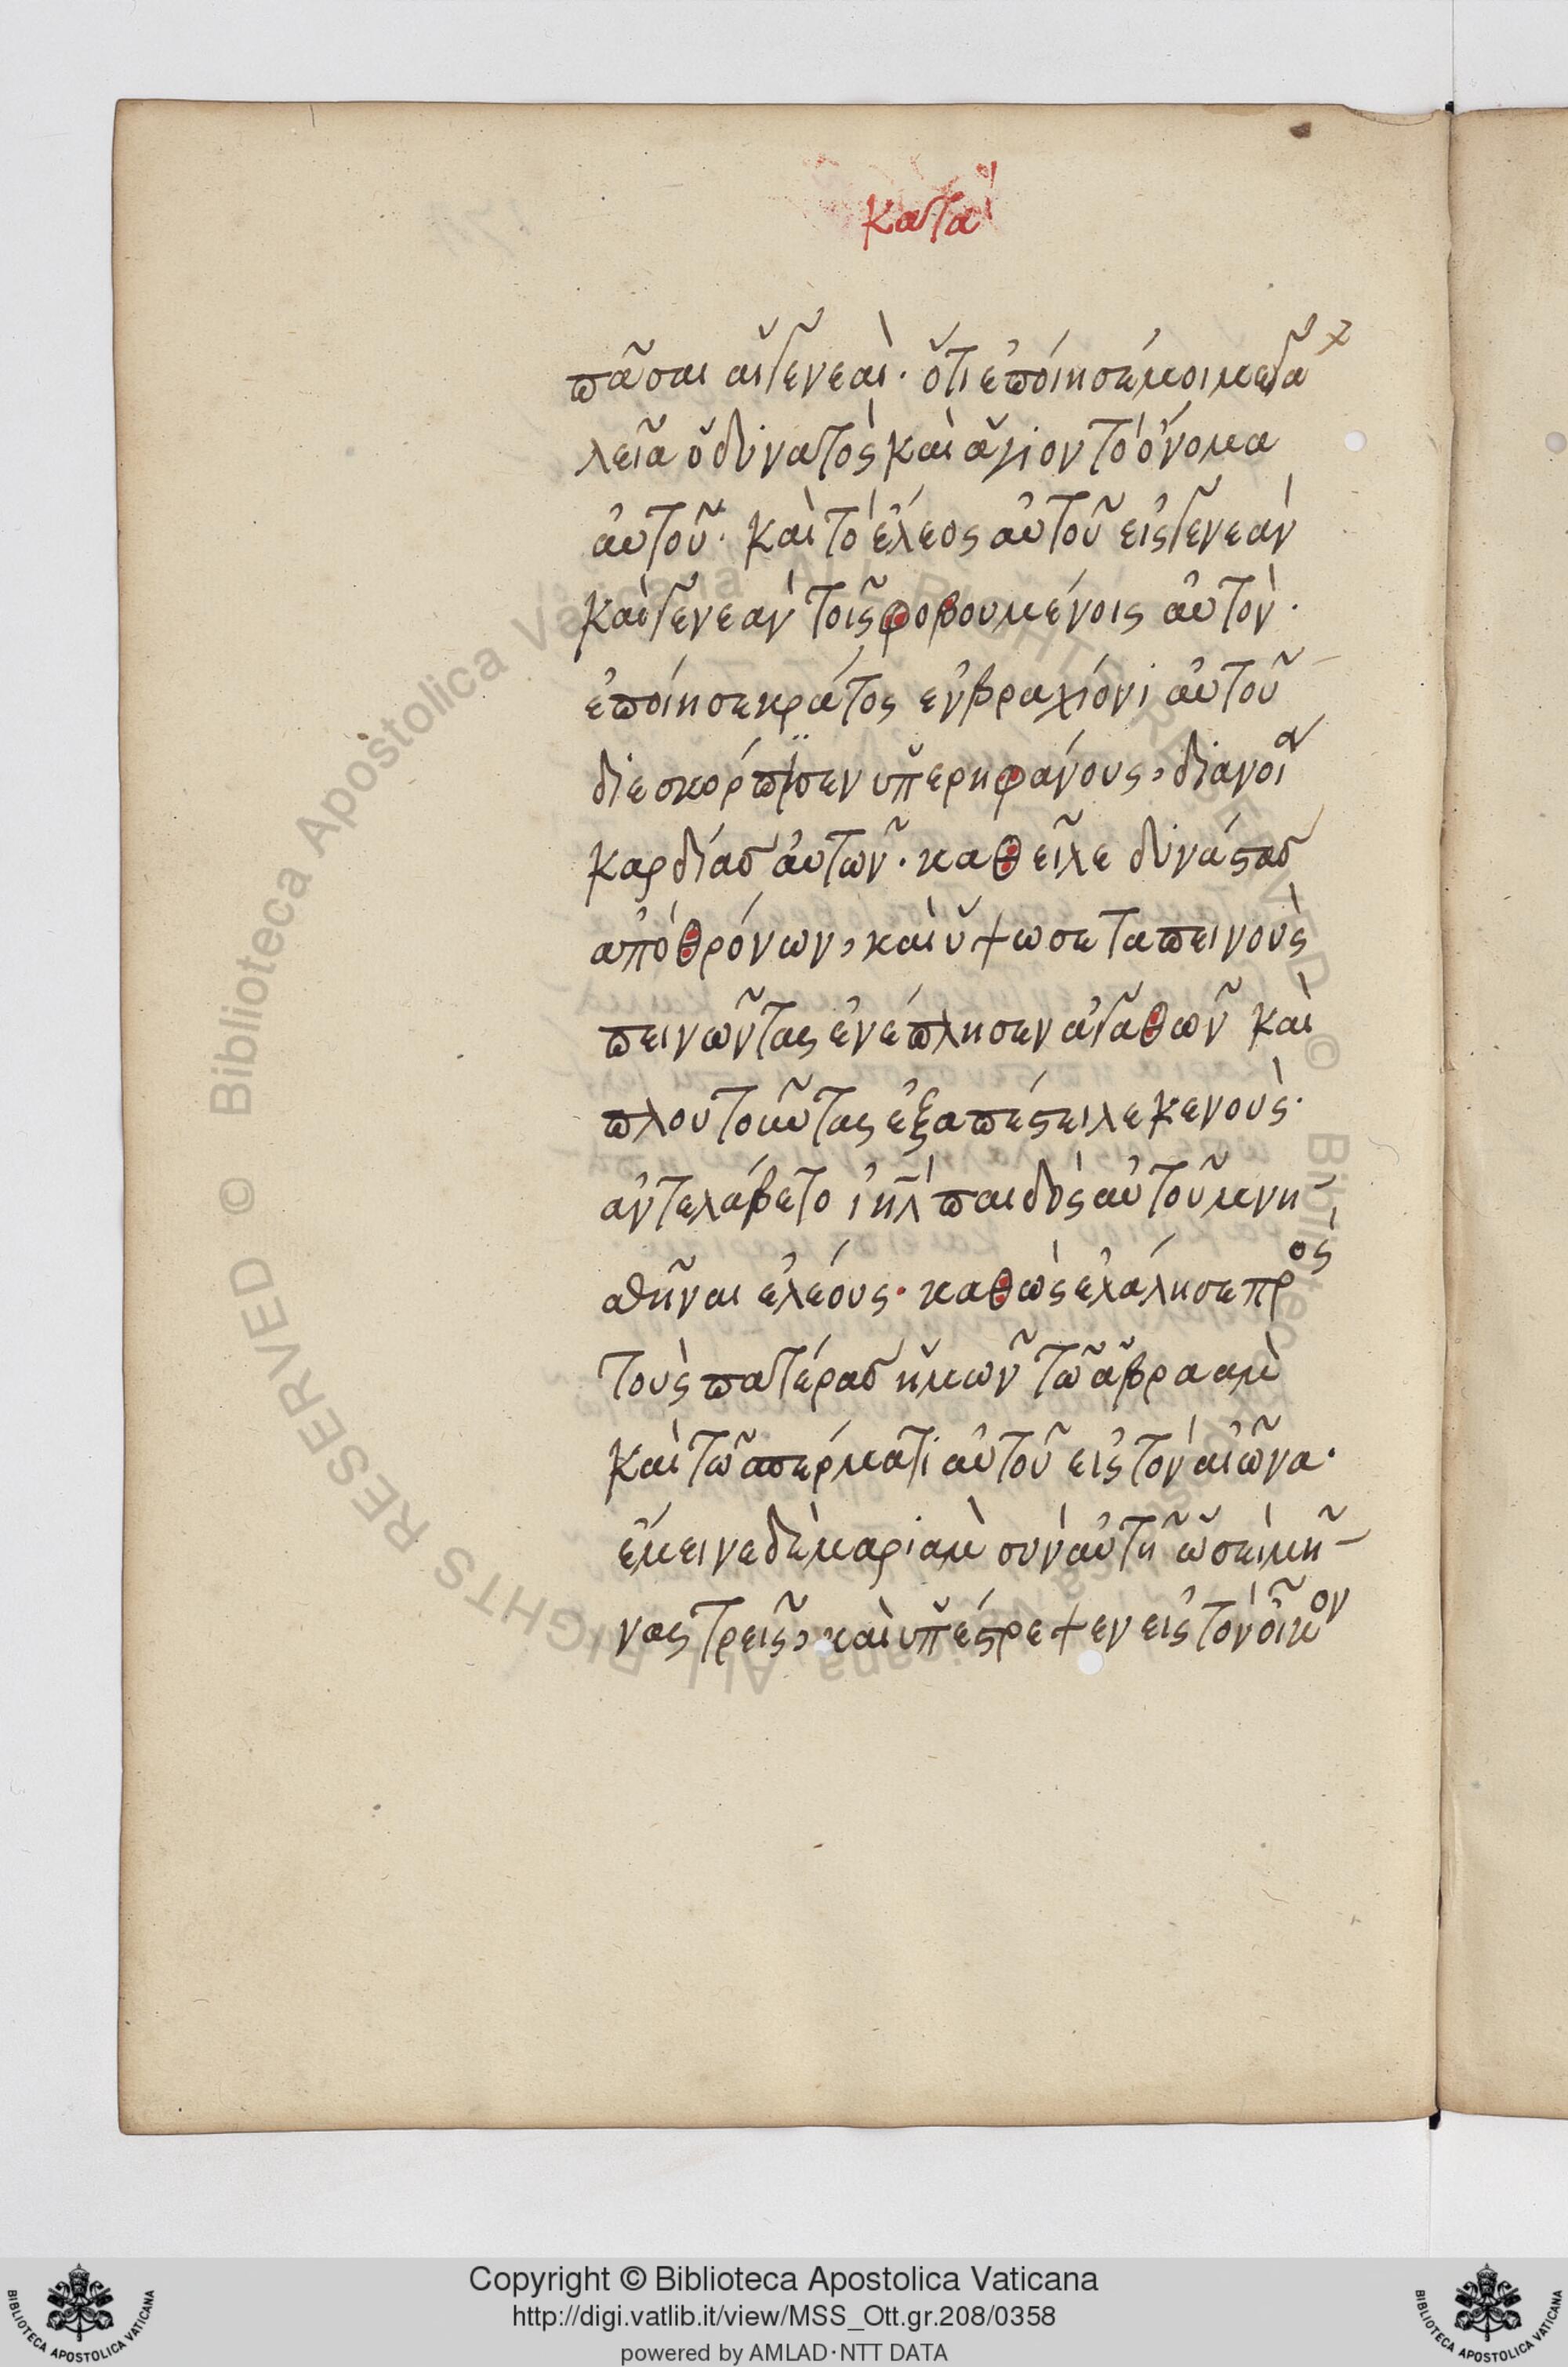 κατὰ
πᾶσαι αἱ γενεαὶ· ὅτι ἐποίησέ μοι μεγα
λεῖα ὁ δυνατὸς καὶ ἅγιον τὸ ὄνομα
αὐτοῦ· καὶ τὸ ἔλεος αὐτοῦ εἰς γενεὰν
καὶ γενεὰν τοῖς φοβουμένοις αὐτὸν·
ἐποίησε κράτος ἐν βραχίονι αὐτοῦ
διεσκόρπϊσεν ὑπερηφάνους, διανοία
καρδίας αὐτῶν· καθεῖλε δυνάστας
ἀπὸ θρόνων, καὶ ὕψωσε ταπεινοὺς
πεινῶντας ἐνέπλησεν ἀγαθῶν καὶ
πλουτοῦντας ἐξαπέστειλε κενούς·
ἀντελάβετο ἰηλ παιδὸς αὐτοῦ μνη-
σθῆναι ἐλέους· καθὼς ἐλάλησε πρὸς
τοὺς πατέρας ἡμῶν τῶ ἁβραὰμ
καὶ τῶ σπέρματι αὐτοῦ εἰς τὸν αἰῶνα·
ἔμεινε δὲ μαριὰμ σὺν αὐτῆ ὡσεὶ μῆ-
νας τρεῖς, καὶ ὑπέστρεψεν εἰς τὸν οἶκον
Copyright © Biblioteca Apostolica Vaticana
http://digi.vatlib.it/view/MSS_Ott.gr.208/0358
powered by AMLAD·NTT DATA
BIBLIOTECA APOSTOLICA VATICANA
BIBLIOTECA APOSTOLICA VATICANA
© Biblioteca Apostolica Vaticana ALL RIGHTS RESERVED © Biblioteca Apostolica Vaticana ALL RIGHTS RESERVED